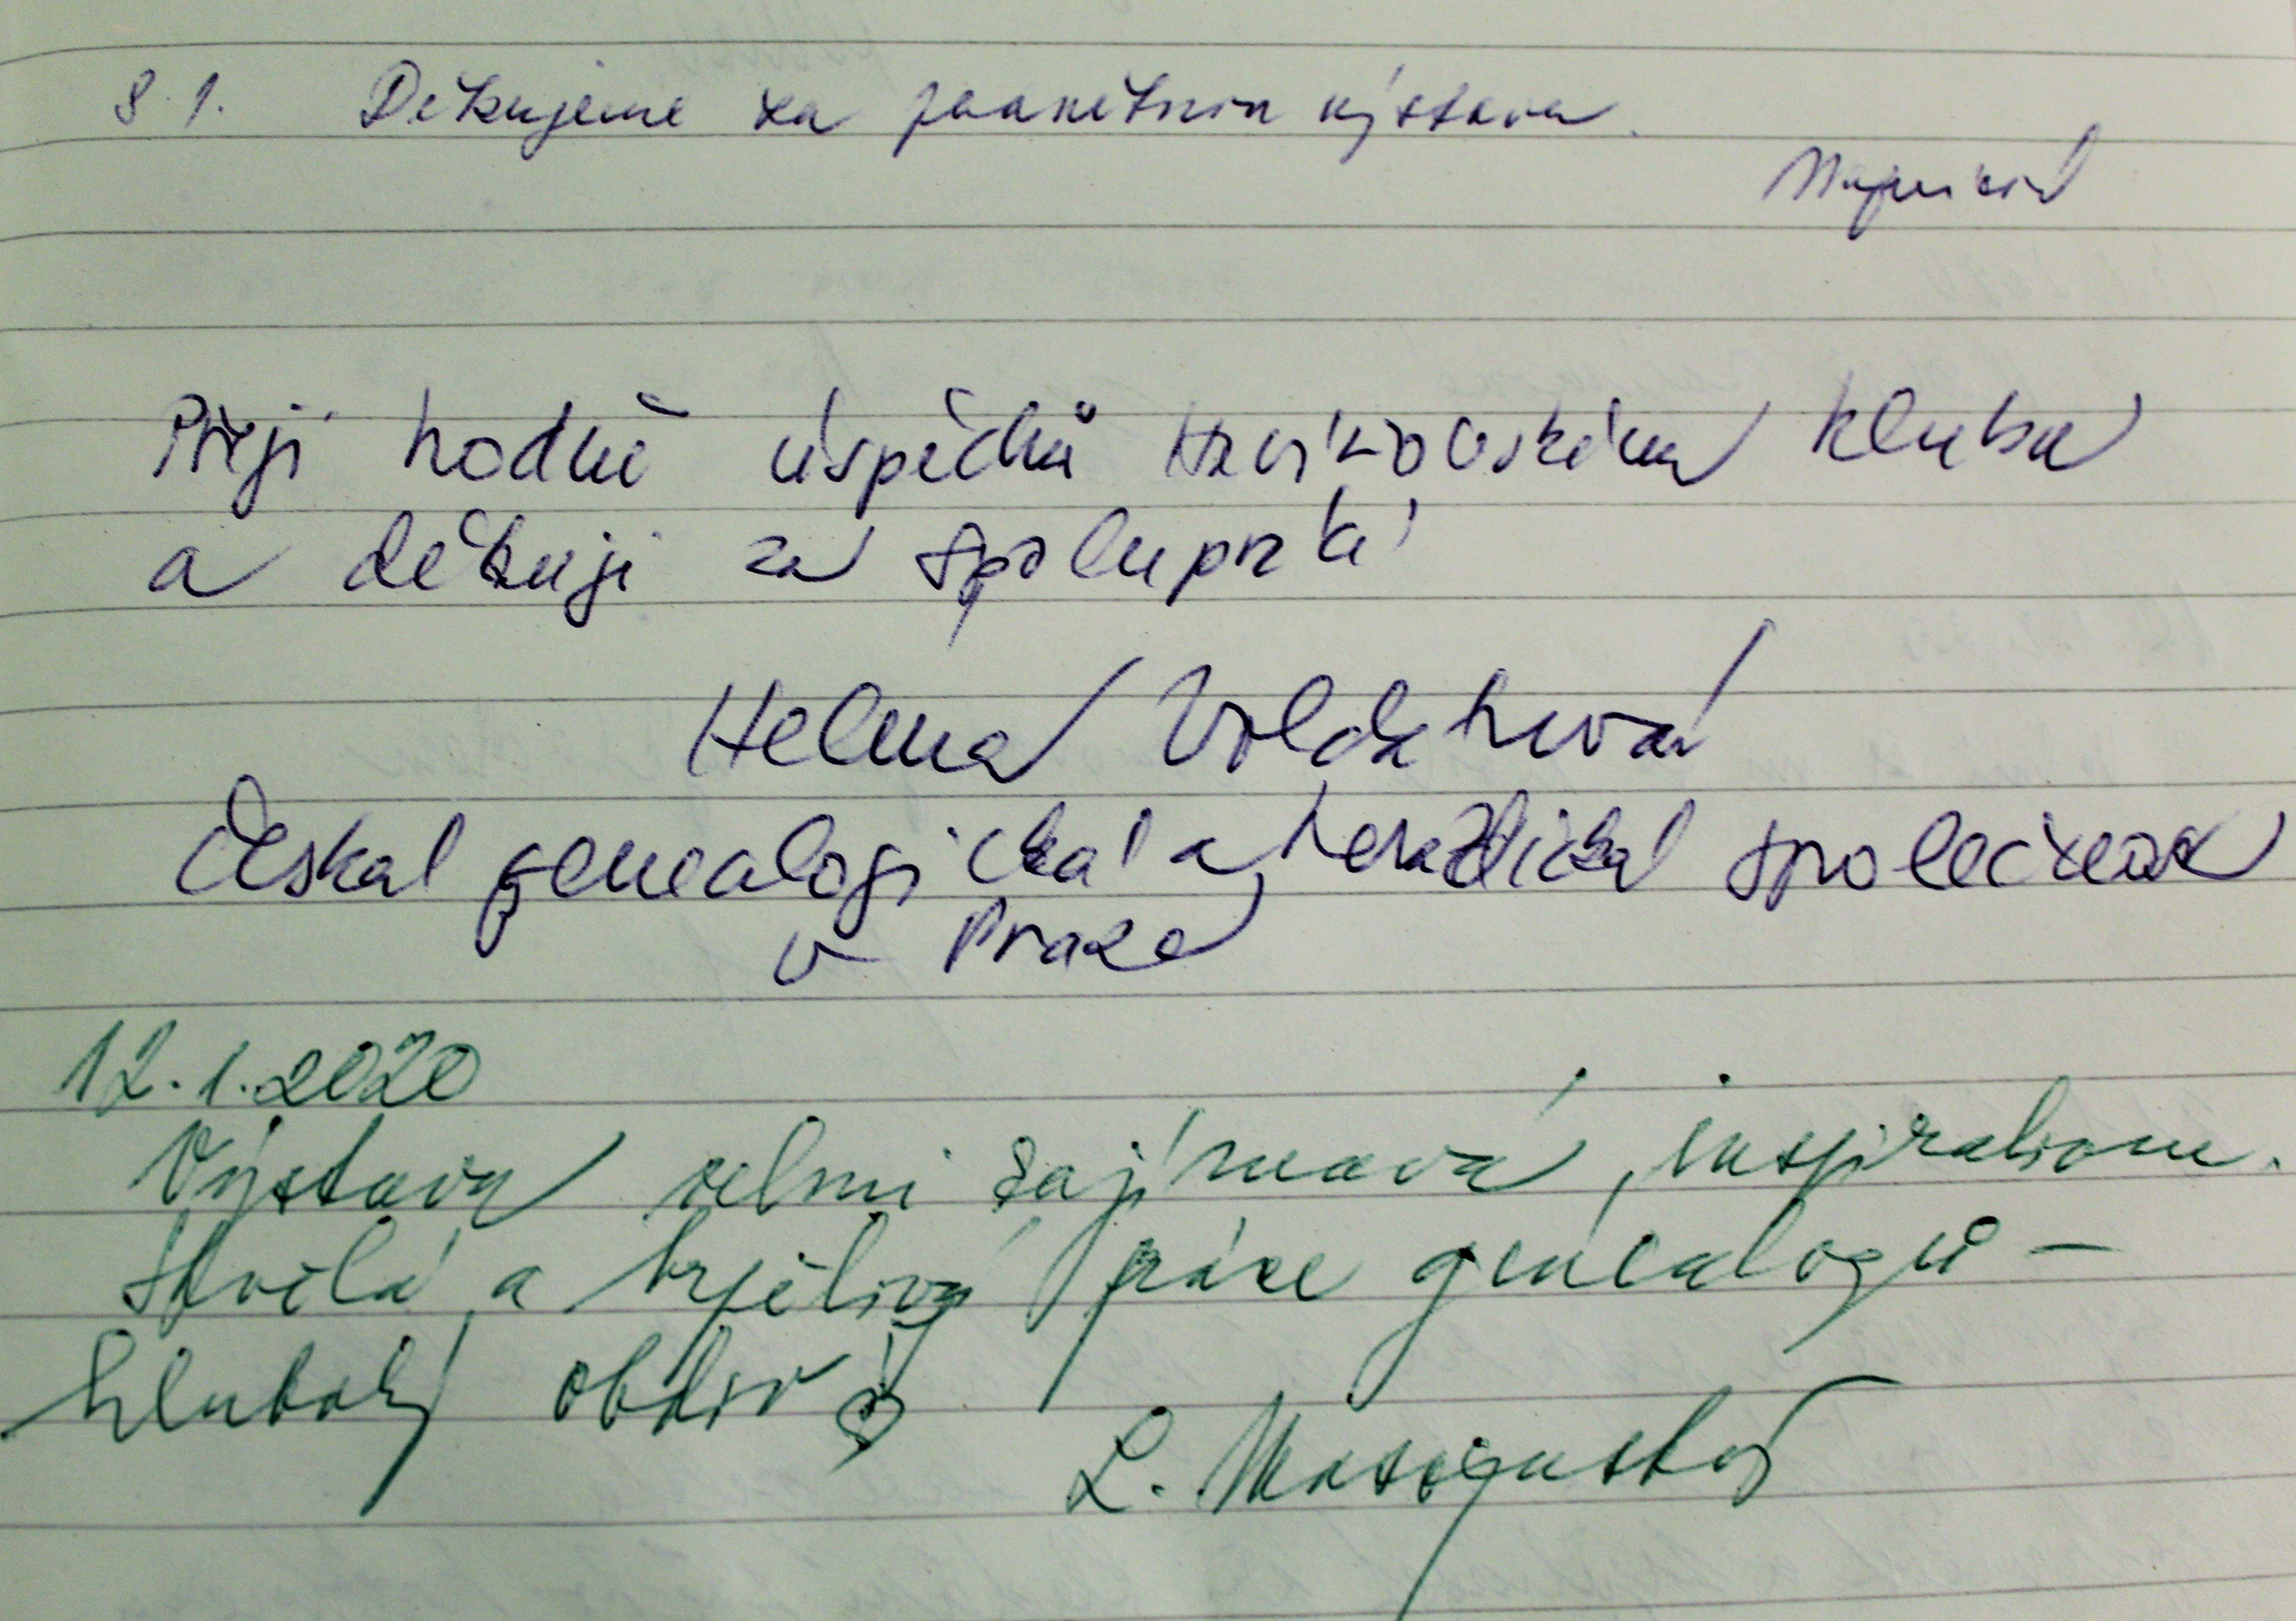 8.1. Děkujeme za pěknou výstavu.
Přeji hodně úspěchů Havířovskému klubu
a děkuji za spolupráci
Helena Voldánová
Česká genealogická a heraldická společnost
v Praze
12.1.2020
Výstava velmi zajímavá, inspirativní.
Skvělá a trpělivá práce genealogů –
hluboký obdiv!
L.